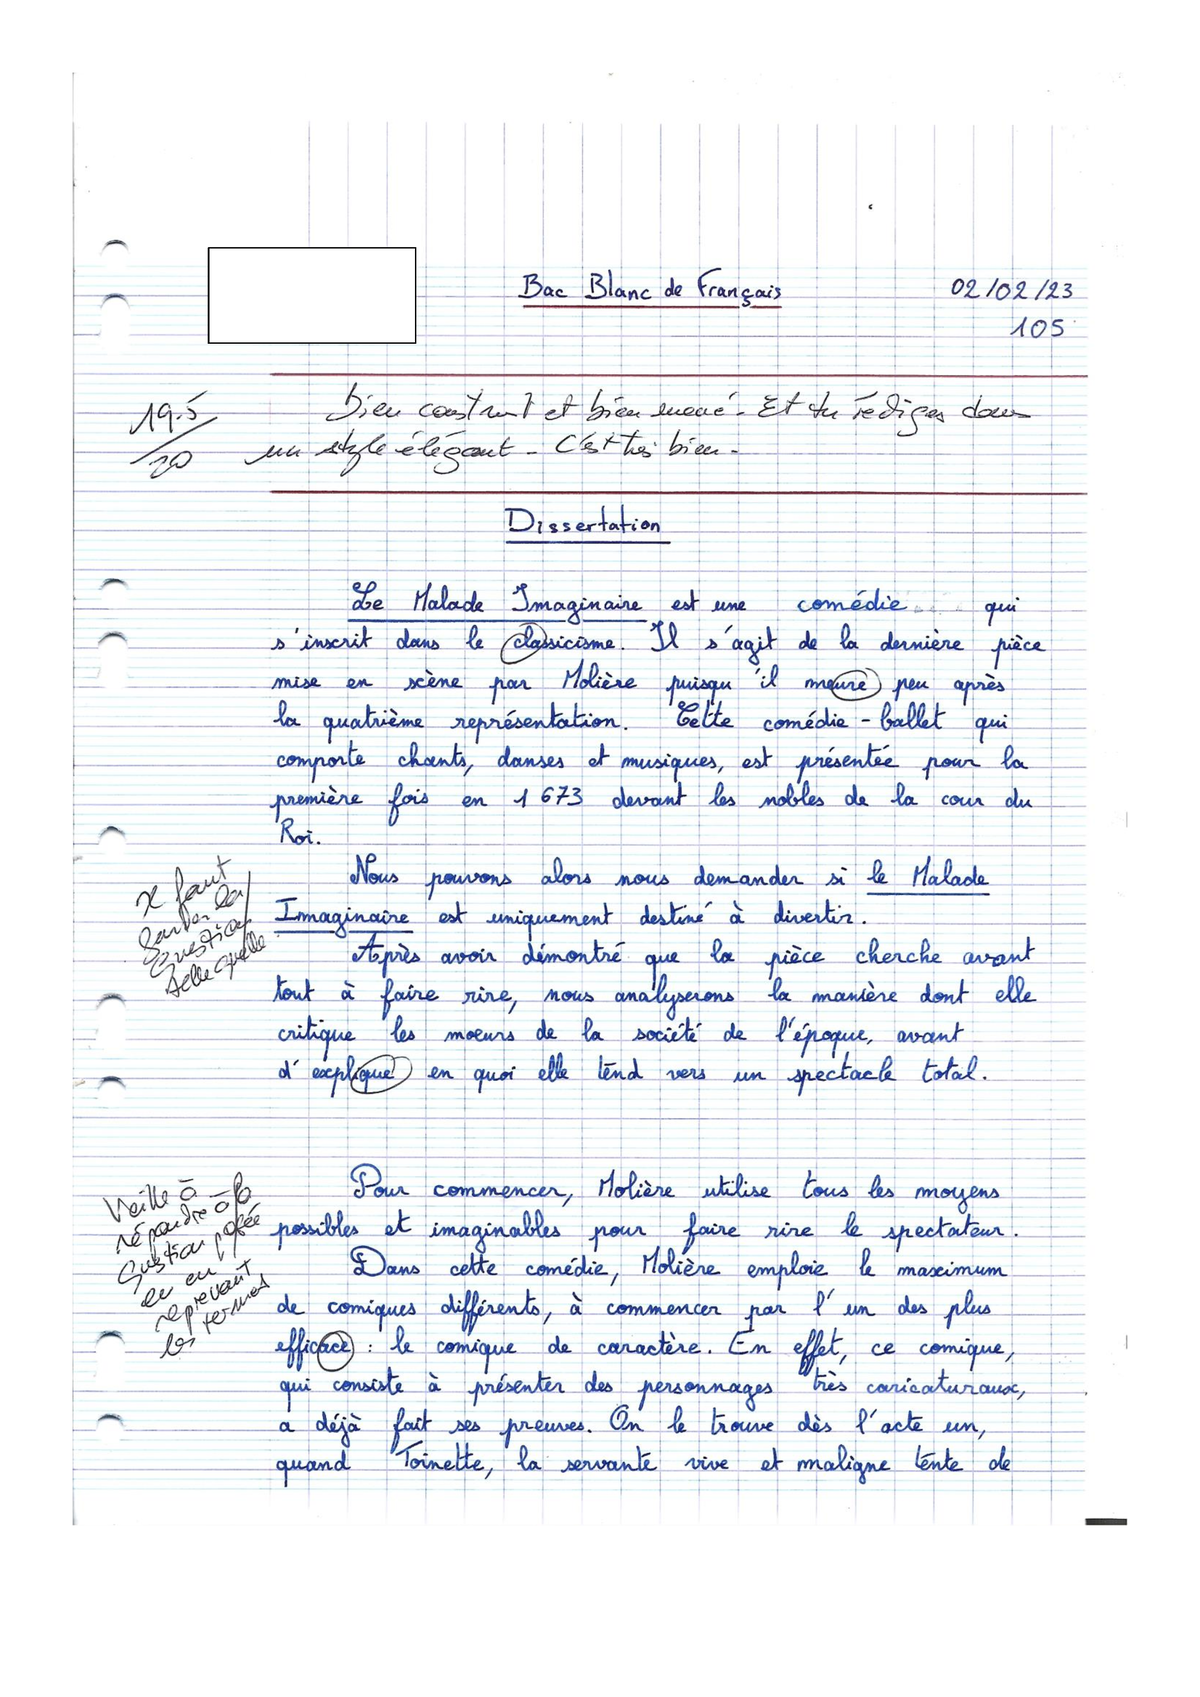 Bac Blanc de Français
02/02/23
105
19.5/20
bien construit et bien mené - Et tu rédiges dans
un style élégant - C'est très bien -
Dissertation
Le Malade Imaginaire est une comédie qui
s'inscrit dans le classicisme. Il s'agit de la dernière pièce
mise en scène par Molière puisqu'il meure peu après
la quatrième représentation. Cette comédie-ballet qui
comporte chants, danses et musiques, est présentée pour la
première fois en 1673 devant les nobles de la cour du
Roi.
Nous pouvons alors nous demander si le Malade
Imaginaire est uniquement destiné à divertir.
Il faut
garder la
question
telle quelle
Après avoir démontré que la pièce cherche avant
tout à faire rire, nous analyserons la manière dont elle
critique les moeurs de la société de l'époque, avant
d'explique en quoi elle tend vers un spectacle total.
Pour commencer, Molière utilise tous les moyens
possibles et imaginables pour faire rire le spectateur.
Veille à
répondre à la
question posée
en en
reprenant
les termes
Dans cette comédie, Molière emploie le maximum
de comiques différents, à commencer par l'un des plus
efficace : le comique de caractère. En effet, ce comique,
qui consiste à présenter des personnages très caricaturaux,
a déjà fait ses preuves. On le trouve dès l'acte un,
quand Toinette, la servante vive et maligne tente de